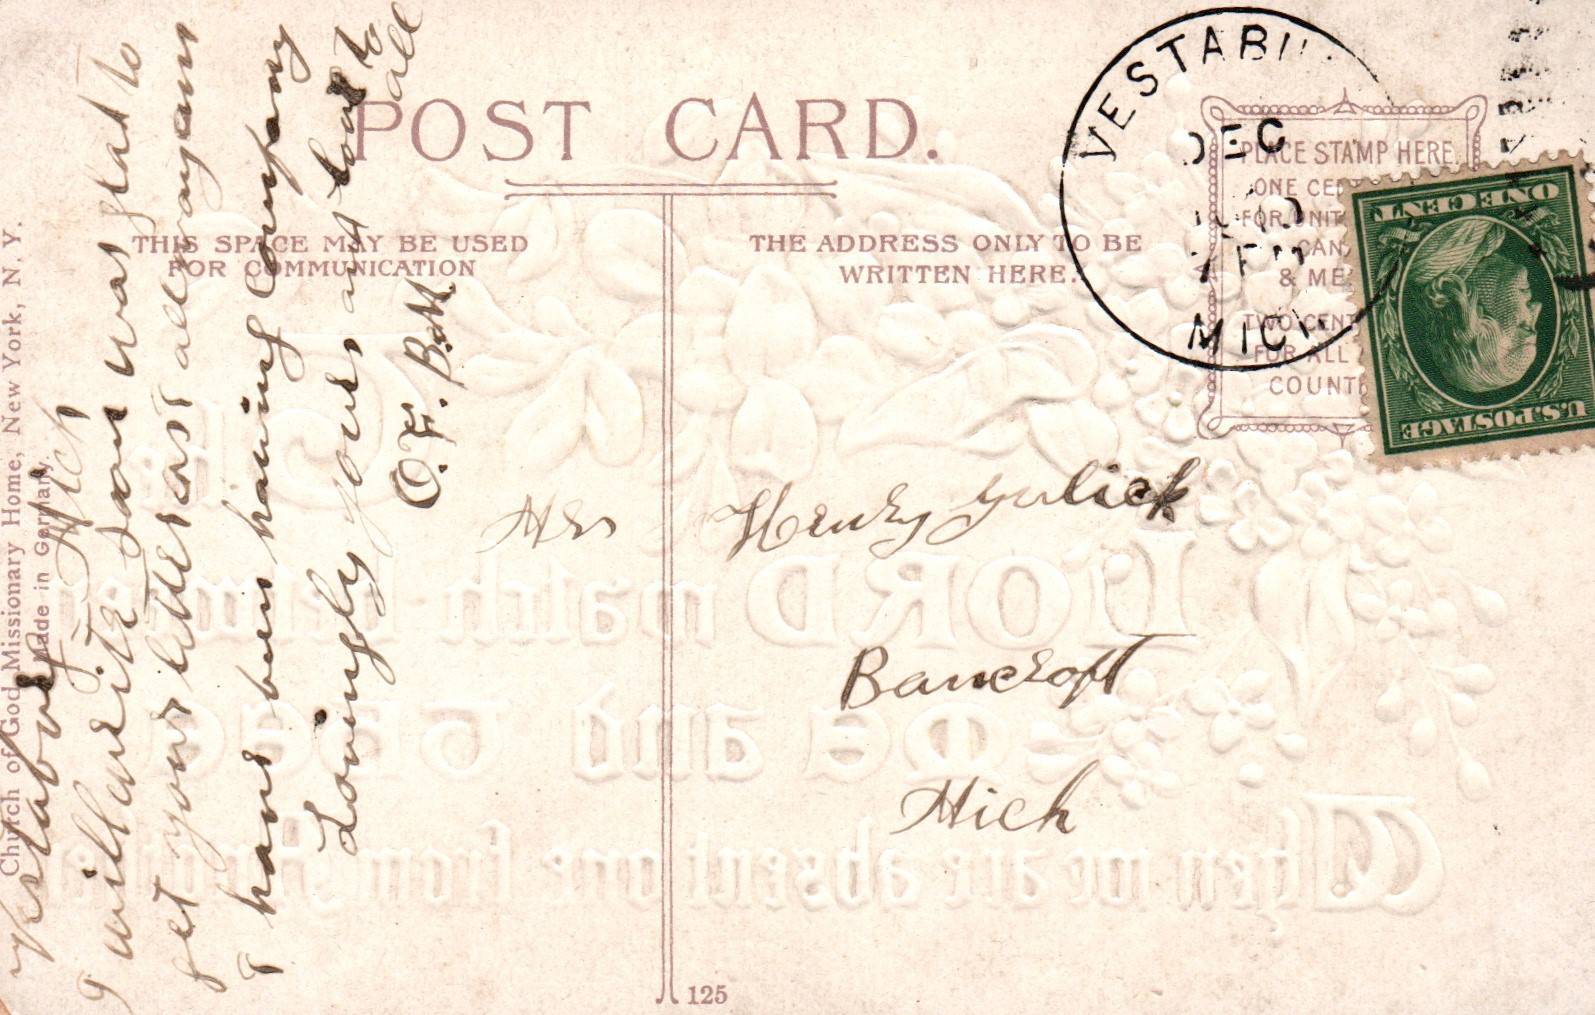 POST CARD.
THIS SPACE MAY BE USED
FOR COMMUNICATION
THE ADDRESS ONLY TO BE
WRITTEN HERE.
VESTABU
DEC
MICH
PLACE STAMP HERE.
ONE CE
FOR UNIT
CAN
& ME
TWO CENT
FOR ALL
COUNT
ONE CENT
U.S. POSTAGE
Vestaburg Mich
I will write soon was glad to
get your letter
I have been having company
Lovingly yours and love to
all
O. F. B.
Mrs Henry Gulick
Bancroft
Mich
Church of God Missionary Home, New York, N. Y.
Made in Germany.
125
The
LORD watch between
ME and THEE
When we are absent one from Another